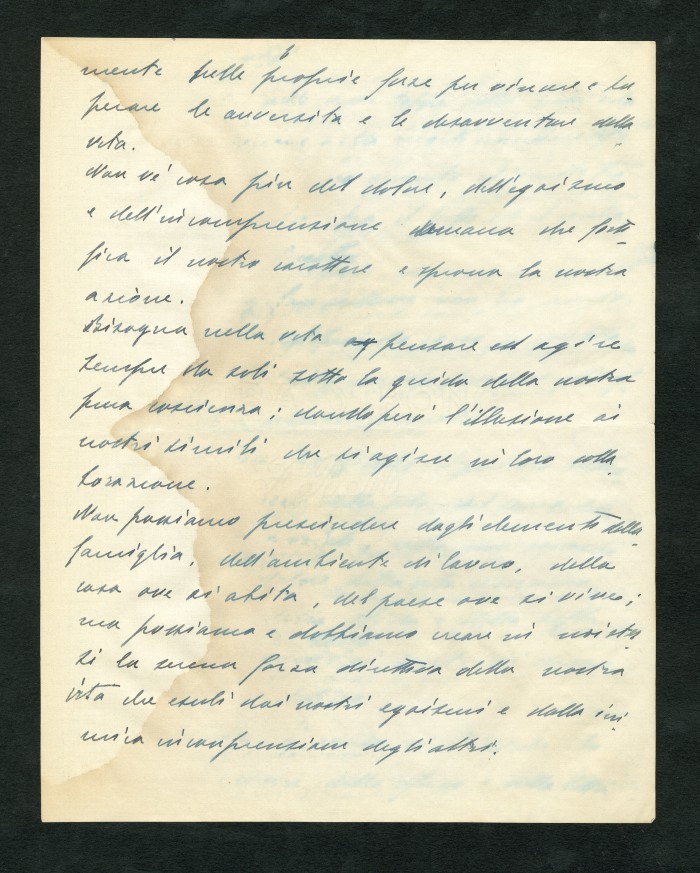 6
mente nelle proprie forze per vincere e su-
perare le avversità e le disavventure della
vita.
Non v'è cosa più del dolore, dell'egoismo
e dell'incomprensione umana che forti-
fica il nostro carattere e sprona la nostra
azione.
Bisogna nella vita pensare ed agire
sempre da soli sotto la guida della nostra
pura coscienza; dando però l'illusione ai
nostri simili che si agisce in loro colla-
borazione.
Non possiamo prescindere dagli elementi della
famiglia, dell'ambiente di lavoro, della
casa ove si abita, del paese ove si vive;
ma possiamo e dobbiamo creare in noi stes
si la serena forza direttiva della nostra
vita che esuli dai nostri egoismi e dalla ini
mica incomprensione degli altri.